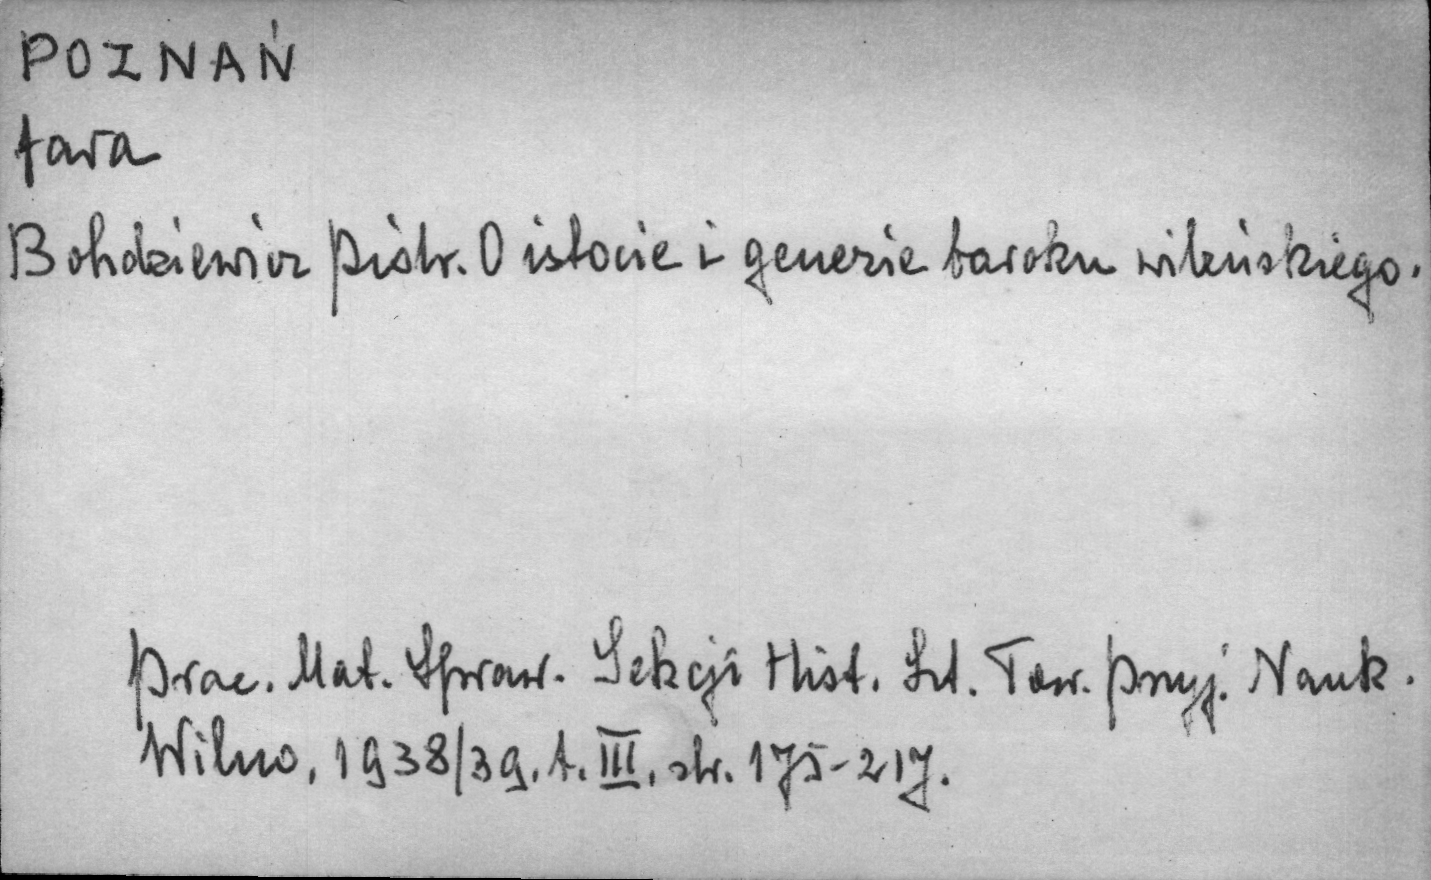 POZNAŃ
fara
Bohdziewicz Piotr. O istocie i genezie baroku wileńskiego.
Prac. Mat. Spraw. Sekcji Hist. Szt. Tow. Przyj. Nauk.
Wilno, 1938/39. t. III, str. 175-217.